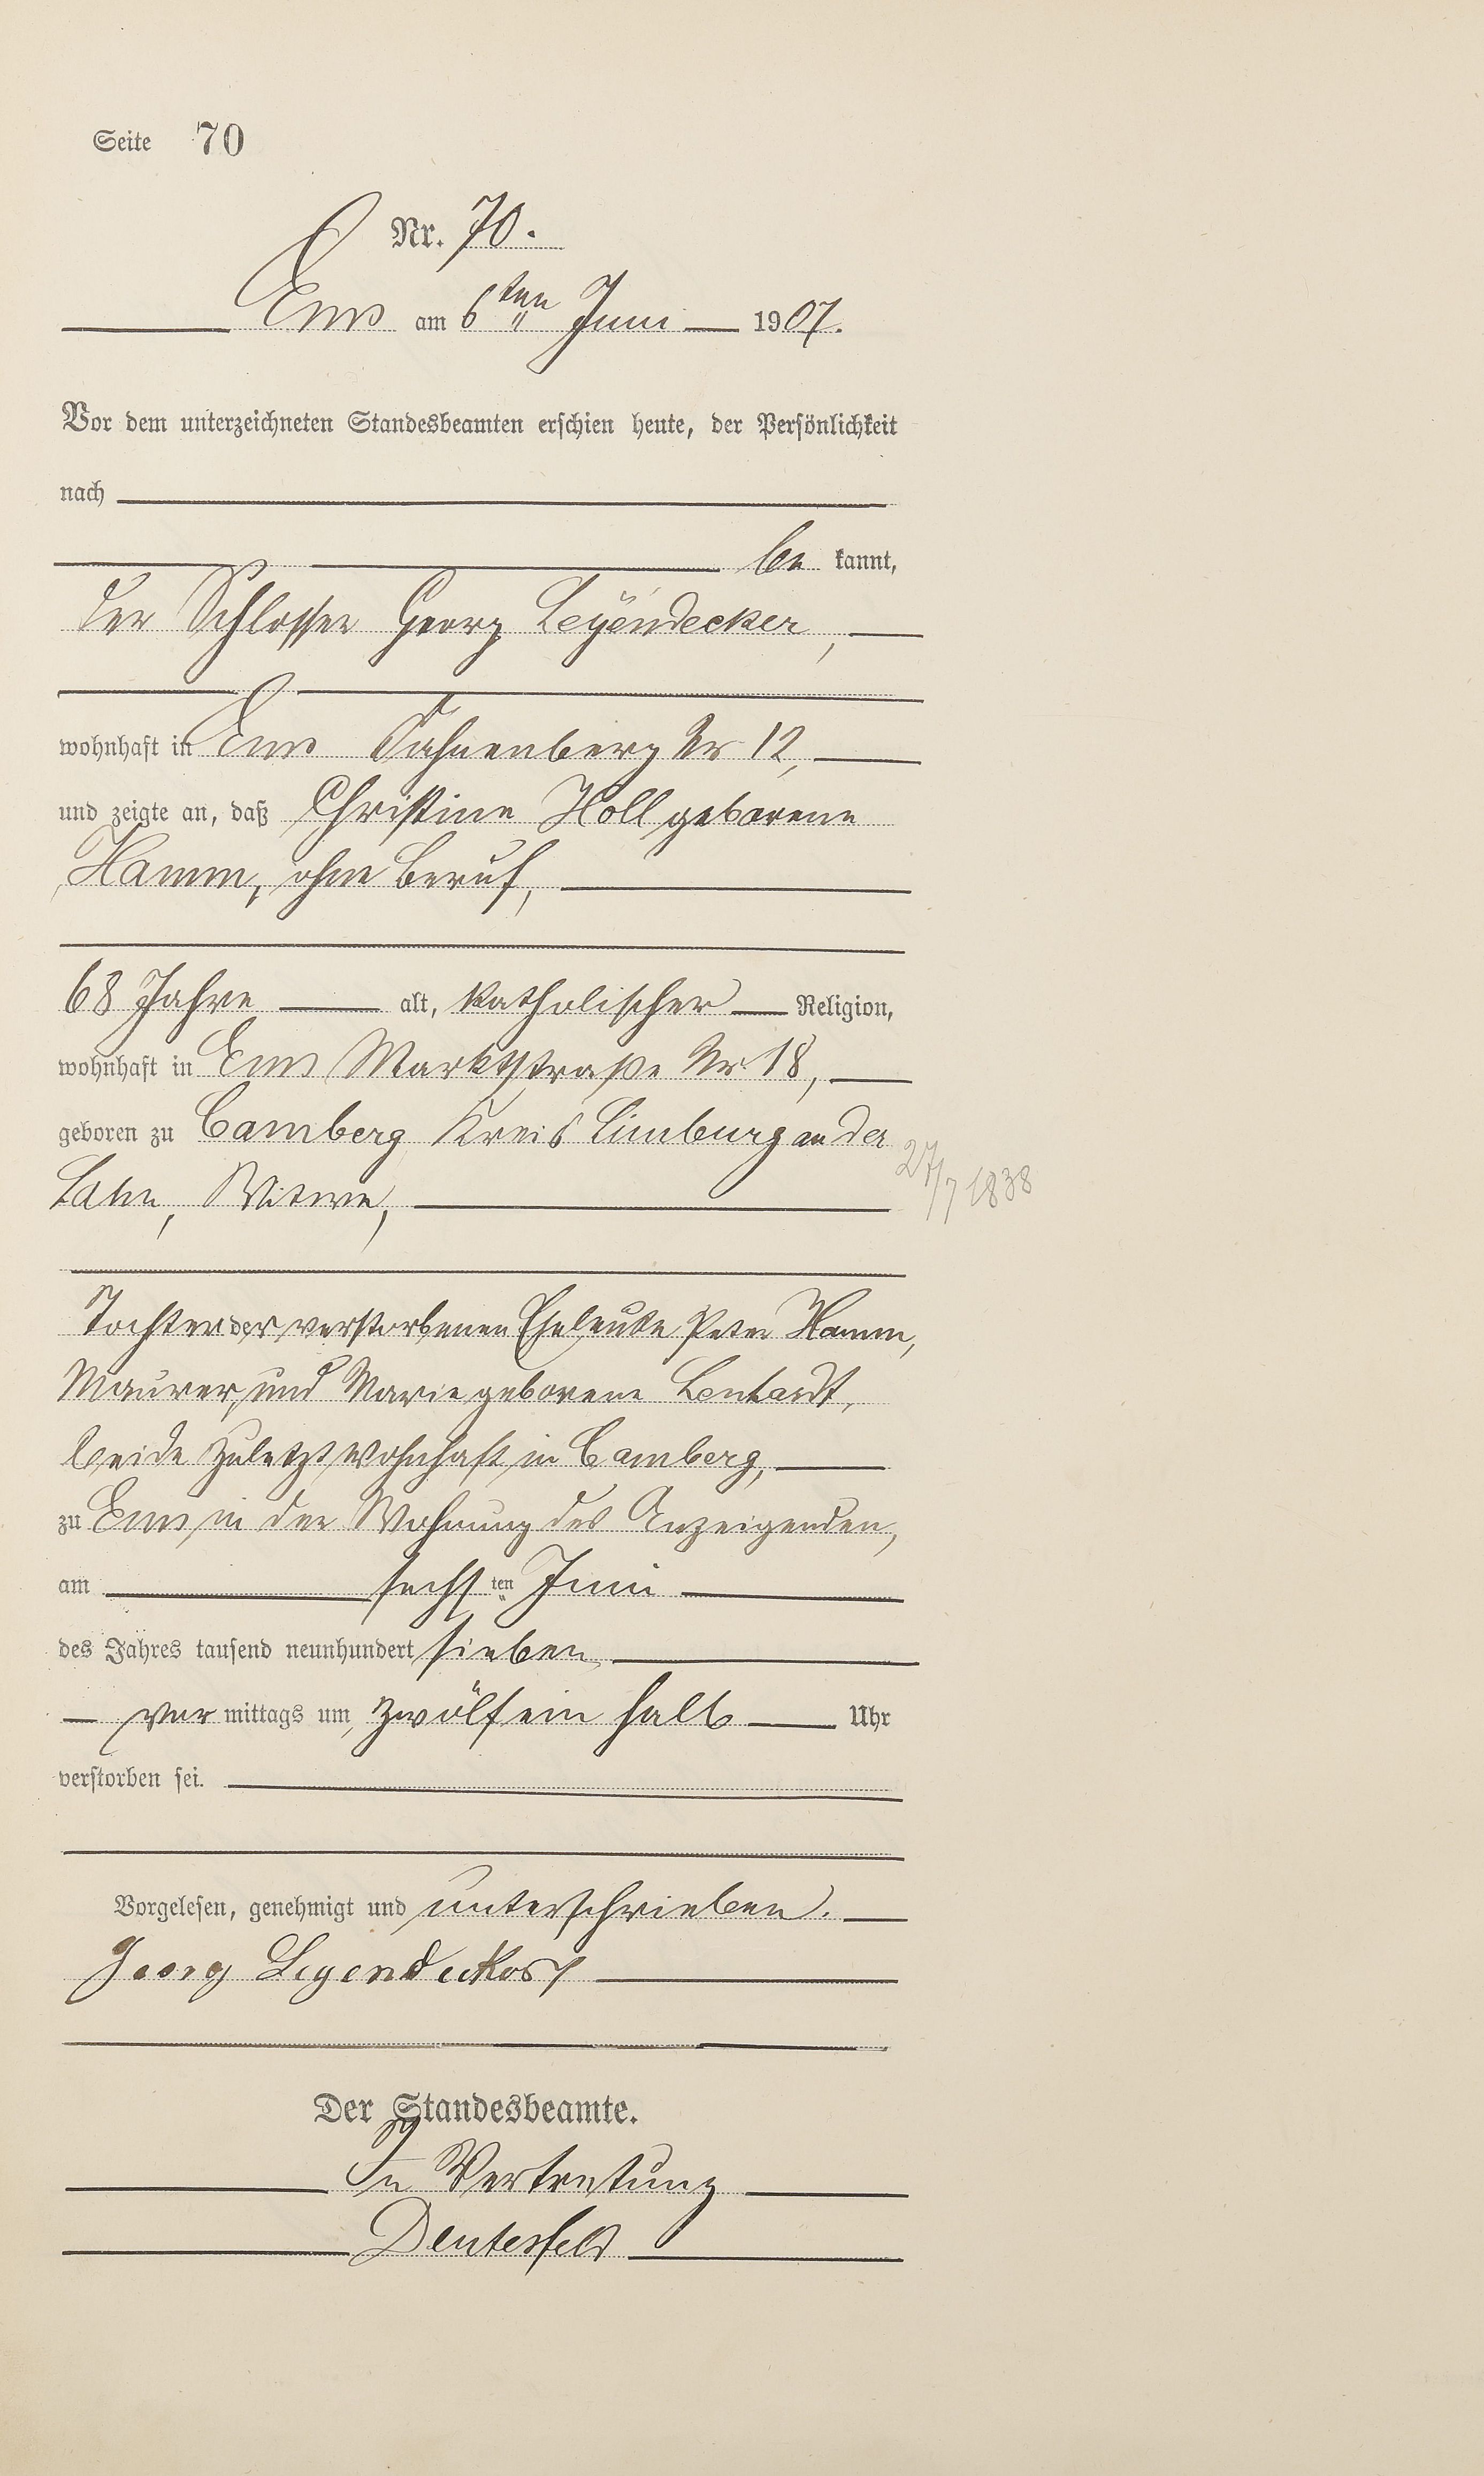 Seite 70
Nr. 70.
Ems am 6ten Juni 1907.
Vor dem unterzeichneten Standesbeamten erschien heute, der Persönlichkeit
nach
be kannt,
der Schlosser Georg Leÿendecker,
wohnhaft in Ems Nr 12,
und zeigte an, daß Christine Holl geborene
Hamm, ohne Beruf,
68 Jahre alt, katholischer Religion,
wohnhaft in Ems Marktstraße Nr. 18,
geboren zu Camberg Kreis Limburg an der
27/7 1838
Lahn, Witwe,
Tochter der verstorbenen Eheleute Peter Hamm,
Maurer, und Marie geborene Lenhardt,
beide zuletzt wohnhaft in Camberg,
zu Ems in der Wohnung des Anzeigenden,
am sechsten Juni
des Jahres tausend neunhundert sieben
vor mittags um zwölf ein halb Uhr
verstorben sei.
Vorgelesen, genehmigt und unterschrieben.
Georg Leyendecker
Der Standesbeamte.
In Vertretung